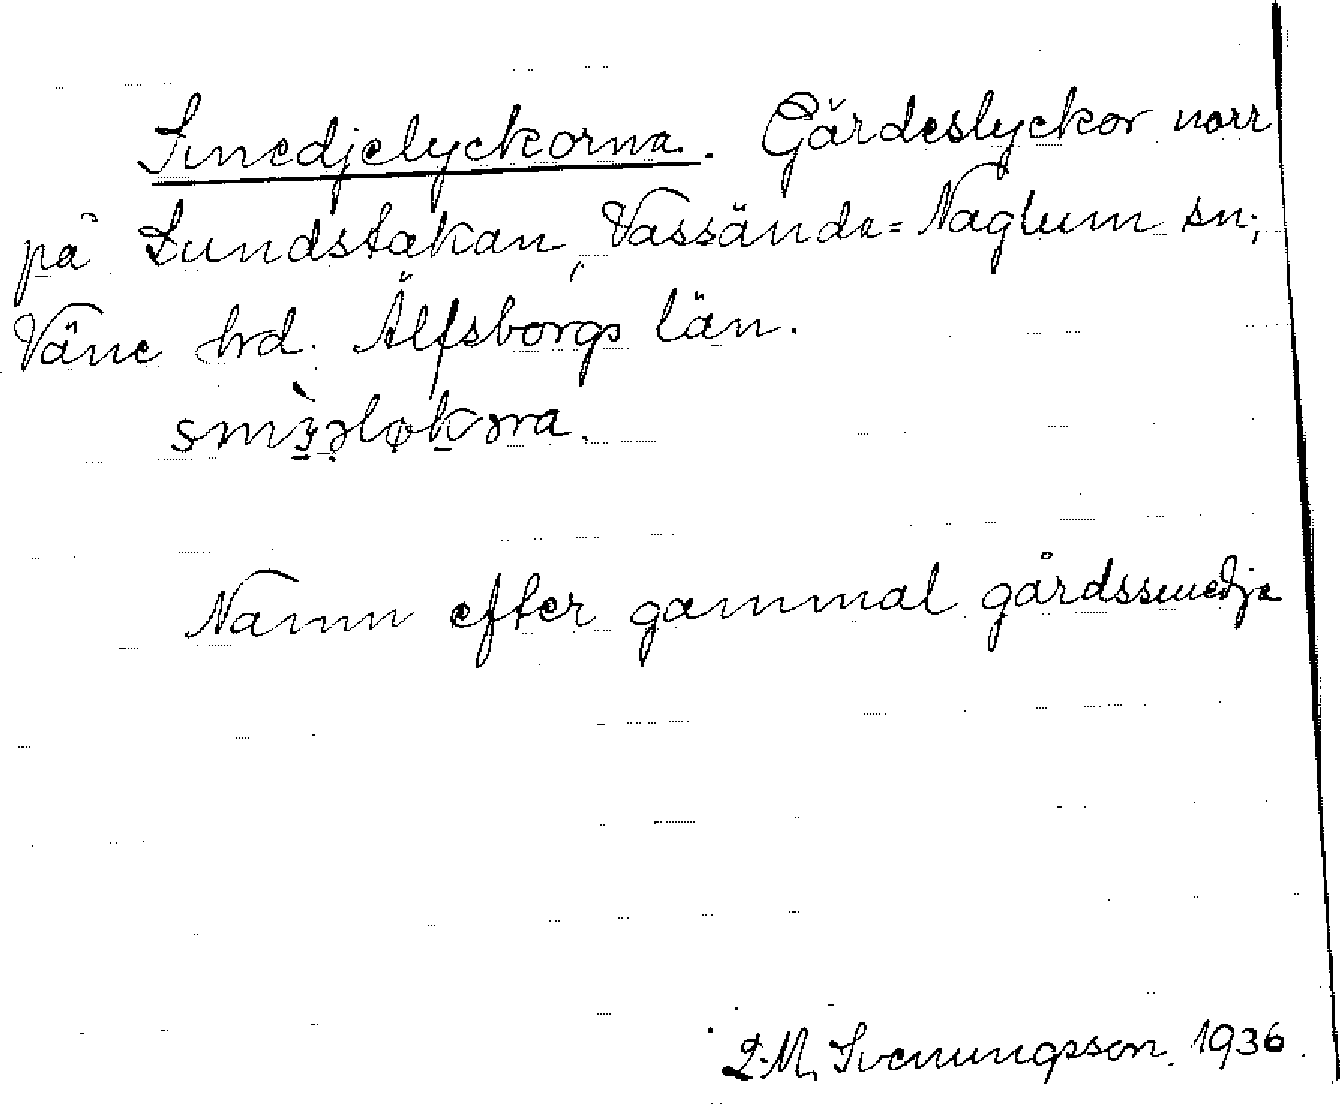 Smedjelyckorna. Gärdeslyckor norr
på Lundstakan, Vassända-Naglum sn;
Väne hrd. Älfsborgs län.
Namn efter gammal gårdssmedja
L.M. Svenungsson. 1936.